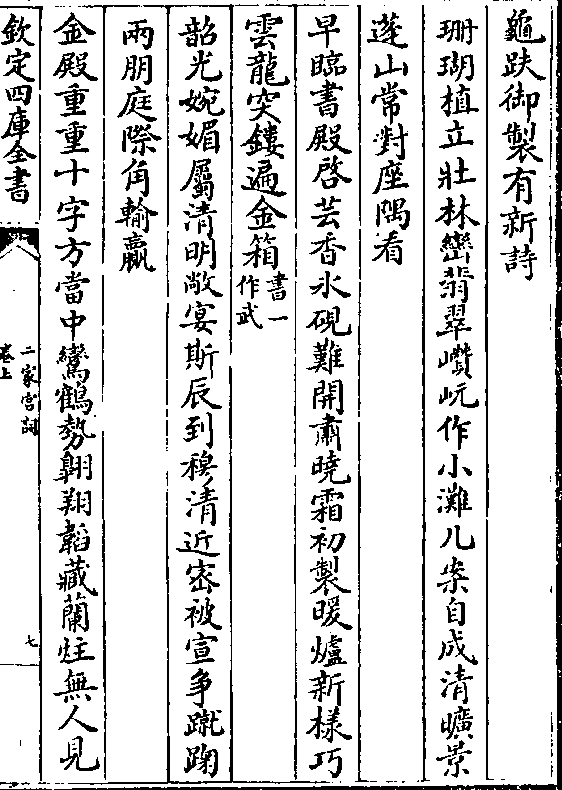 龜趺御製有新詩
珊瑚植立壯林巒翡翠巑岏作小灘几案自成清曠景
蓬山常對座隅看
早臨書殿啓芸香氷硯難開肅曉霜初製暖爐新樣巧
雲龍突鏤遍金箱書一作武
韶光婉媚屬清明敞宴斯辰到穆清近密被宣争蹴踘
兩朋庭際角輸贏
金殿重重十字方當中鸞鶴勢翺翔韜藏蘭炷無人見
欽定四庫全書
二家宫詞
卷上
七